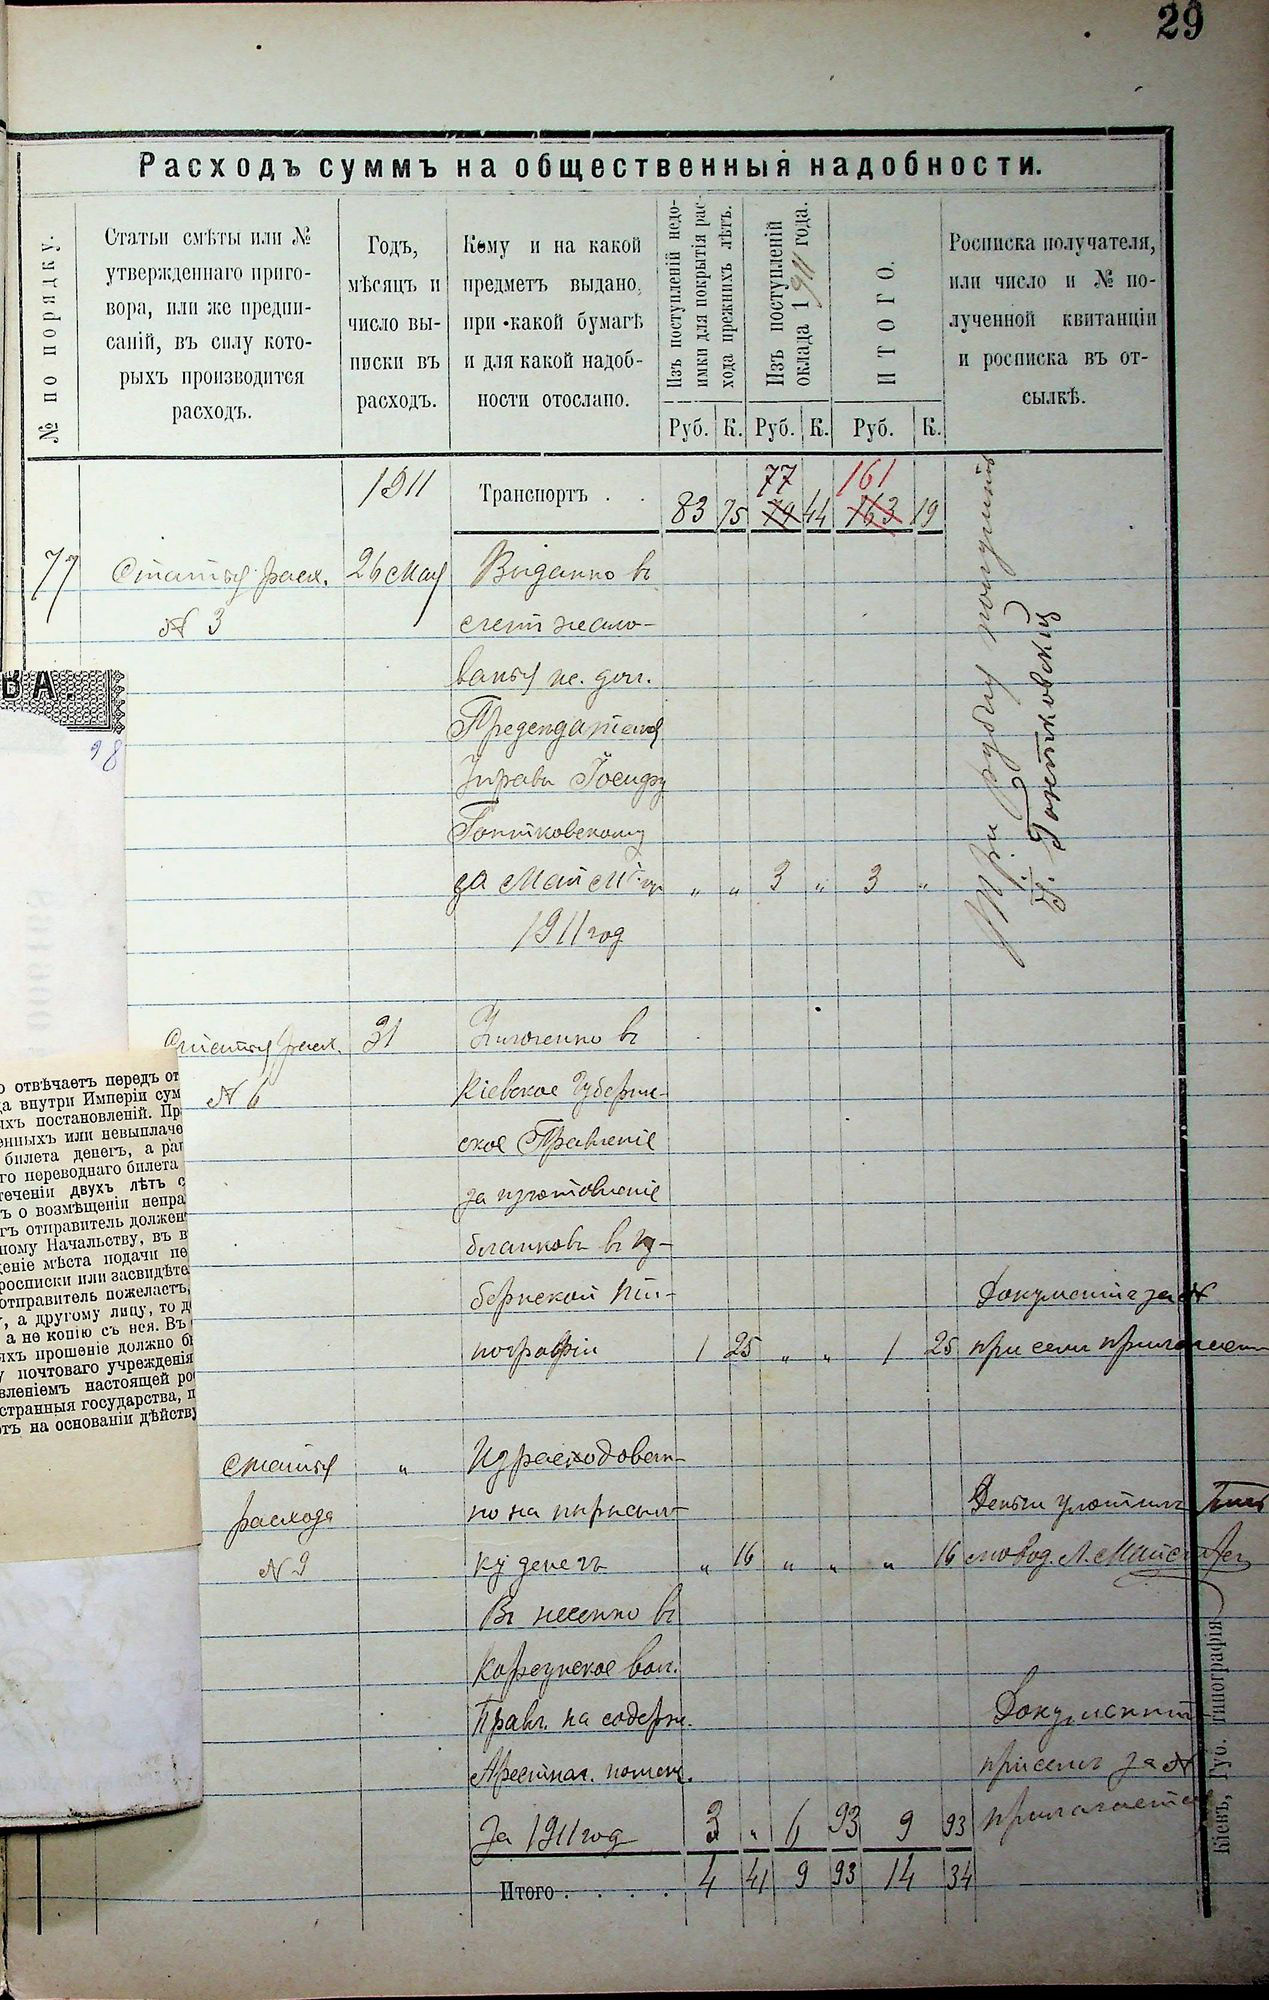 29
Расходъ суммъ на общественныя надобности.
№ по порядку.
Статьи смѣты или №
утвержденнаго приго-
вора, или же предпи-
саній, въ силу кото-
рыхъ производится
расходъ.
Годъ,
мѣсяцъ и
число вы-
писки въ
расходъ.
Кому и на какой
предметъ выдано,
при какой бумагѣ
и для какой надоб-
ности отослано.
Изъ поступленій недо-
имки для покрытія рас-
хода прежнихъ лѣтъ.
Изъ поступленій
оклада 1911 года.
ИТОГО.
Росписка получателя,
или число и № по-
лученной квитанціи
и росписка въ от-
сылкѣ.
Руб. К. Руб. К. Руб. К.
77 161
1911 Транспортъ . . 83 75 79 44 163 19
77 Статья расх. 26 Мая Выданно въ
№ 3 счетъ жало-
ванья
Предсѣдателя
Управы Іосифу
Гонтковскому
за Май 3 „ 3 „
1911 год
Три рубля получилъ
Гонтковский
Статья расх. 31 Уплоченно въ
№ 6 Кіевское Губерн-
ское Правленіе
за изготовленіе
бланковъ въ Гу-
бернской Ти-
пографіи 1 25 „ „ 1 25
Документъ за №
при семъ
Статья „ Израсходован-
расхода но на пересыл-
№ 9 ку денегъ „ 16 „ „ „ 16
Деньги уплотилъ
Внесенно въ
Корсунское вол.
Правл. на содерж.
Арестнаг. помещ.
За 1911 год 3 „ 6 93 9 93
Документъ
при семъ за №
прилагается
Итого . . . . 4 41 9 93 14 34
Кіевъ, Губ. типографія
ВА.
98
о отвѣчаетъ передъ от
да внутри Имперіи сум
ыхъ постановленій. Пр
енныхъ или невыплаче
билета денегъ, а рав
го переводнаго билета
теченіи двухъ лѣтъ с
ъ о возмѣщеніи непра
гъ отправитель должен
ному Начальству, въ в
деніе мѣста подачи пе
росписки или засвидѣте
отправитель пожелаетъ,
, а другому лицу, то д
а не копію съ нея. Въ
яхъ прошеніе должно б
у почтоваго учрежденія
вленіемъ настоящей рос
странныя государства, п
отъ на основаніи дѣйству